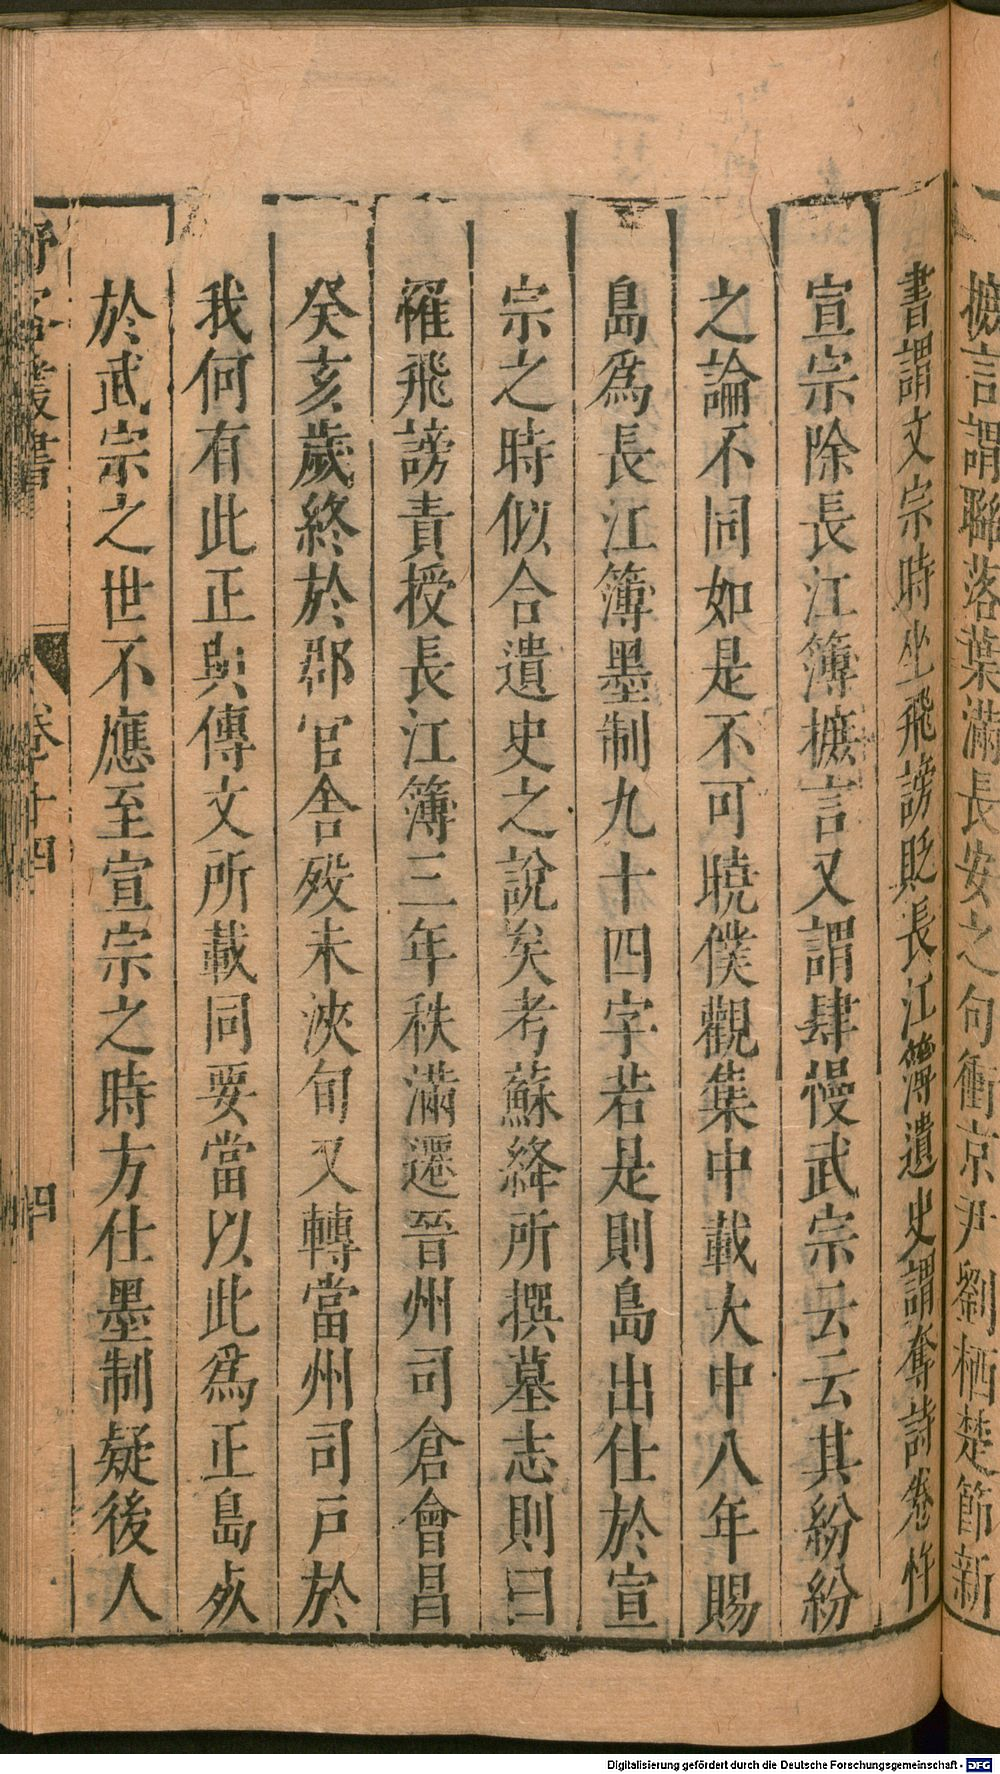 摭言謂聯落葉滿長安之句衝京尹劉栖楚節新
書謂文宗時坐飛謗貶長江簿遺史謂奪詩卷忤
宣宗除長江簿摭言又謂肆慢武宗云云其紛紛
之論不同如是不可曉僕觀集中載大中八年賜
島爲長江簿墨制九十四字若是則島出仕於宣
宗之時似合遺史之說矣考蘇絳所撰墓志則曰
罹飛謗責授長江簿三年秩滿遷晉州司倉會昌
癸亥歲終於郡官舍歿未浹旬又轉當州司戸於
我何有此正與傳文所載同要當以此爲正島歿
於武宗之世不應至宣宗之時方仕墨制疑後人
野客叢書 卷十四 四
Digitalisierung gefördert durch die Deutsche Forschungsgemeinschaft - DFG